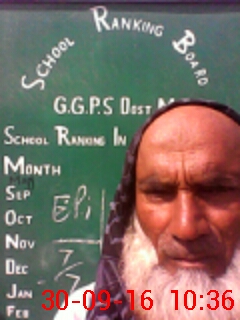 SCHOOL RANKING BOARD
G.G.P.S DOST M
SCHOOL RANKING IN
MONTH
SEP
OCT
NOV
DEC 7
JAN 7
FEB
30-09-16 10:36